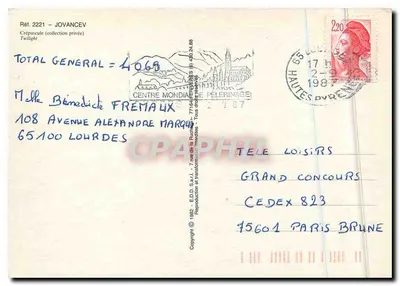 Réf. 2221 - JOVANCEV
Crépuscule (collection privée)
Twilight
TOTAL GENERAL = 4069
Melle Bénédicte FREMAUX
108 AVENUE ALEXANDRE MARQUI
65100 LOURDES
CENTRE MONDIAL DE PELERINAGE
2,20
65 LOURDES
17 H
2-9
1987
HAUTES PYRENEES
Copyright © 1982 - E.D.D. S.a.r.l. - 7 rue de la
Reproduction et
TELE LOISIRS
GRAND CONCOURS
CEDEX 823
75601 PARIS BRUNE
CPARAMA